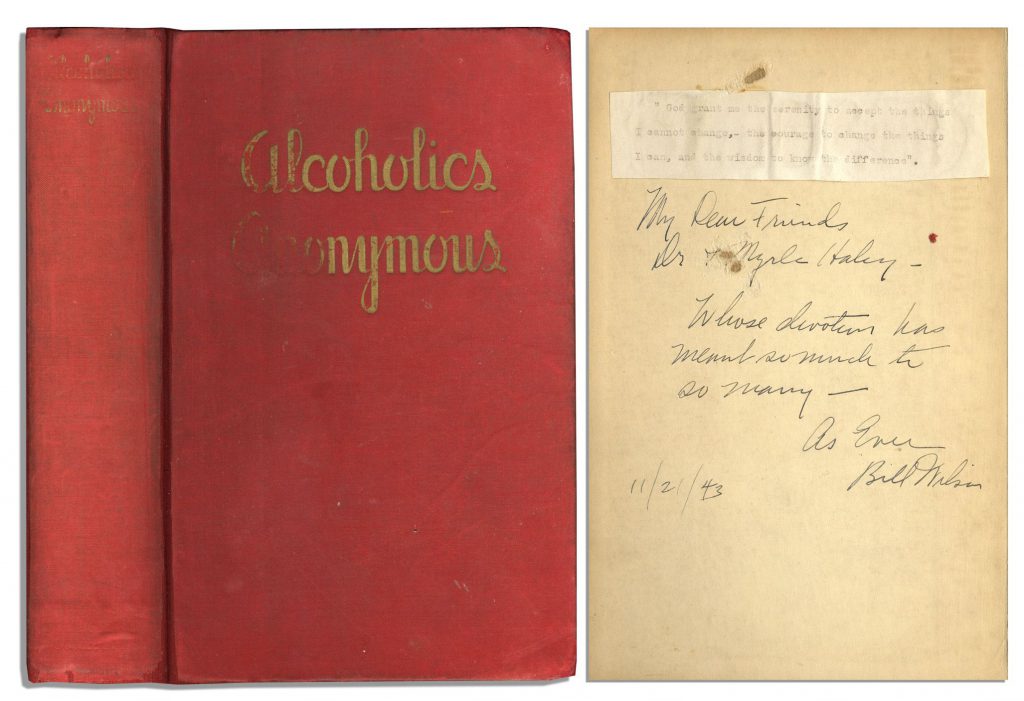 Alcoholics
Anonymous
Alcoholics
Anonymous
" God grant me the serenity to accept the things
I cannot change,- the courage to change the things
I can, and the wisdom to know the difference".
My Dear Friends
Dr + Myrle Haley –
Whose devotion has
meant so much to
so many –
As Ever
Bill Wilson
11/21/43